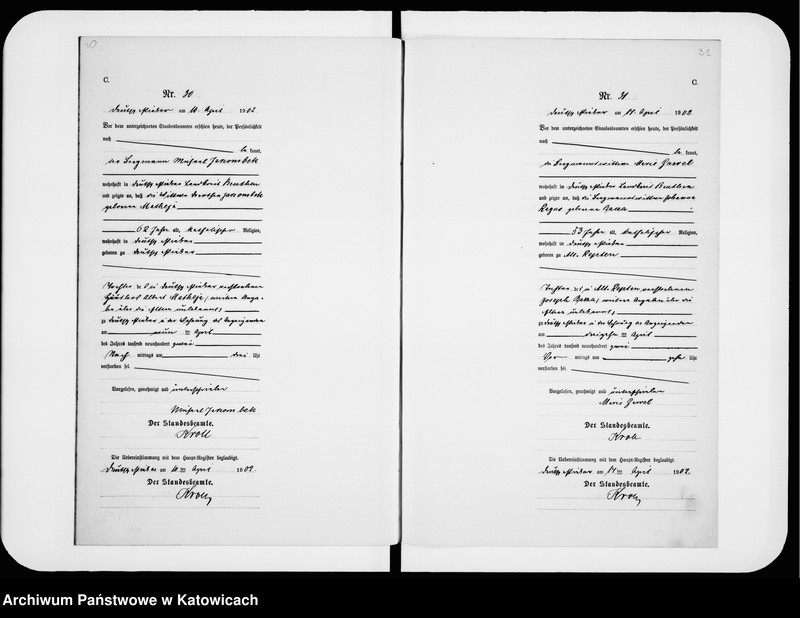 30
C.
Nr. 30
Deutsch Piekar am 10. April 1902.
Vor dem unterzeichneten Standesbeamten erschien heute, der Persönlichkeit
nach
be kannt,
der Bergmann Michael Jakombek
wohnhaft in Deutsch Piekar Landkreis Beuthen
und zeigte an, daß die Wittwe Dorothea Jakombek
geborene
62 Jahre alt, katholischer Religion,
wohnhaft in Deutsch Piekar
geboren zu Deutsch Piekar
Tochter des in Deutsch Piekar verstorbenen
Häuslers Albert weitere Anga-
be über die Eltern unbekannt,
zu Deutsch Piekar in der Wohnung des Anzeigenden
am neun ten April
des Jahres tausend neunhundert zwei
Nach mittags um drei Uhr
verstorben sei.
Vorgelesen, genehmigt und unterschrieben
Michael Jakombek
Der Standesbeamte.
Kroll
Die Uebereinstimmung mit dem Haupt-Register beglaubigt.
Deutsch Piekar am 10ten April 1902.
Der Standesbeamte.
Kroll
31
C.
Nr. 31
Deutsch Piekar am 14. April 1902
Vor dem unterzeichneten Standesbeamten erschien heute, der Persönlichkeit
nach
be kannt,
die Bergmannswittwe Marie Gawel
wohnhaft in Deutsch Piekar Landkreis Beuthen
und zeigte an, daß die Bergmannswittwe Johanna
geborene
53 Jahre alt, katholischer Religion,
wohnhaft in Deutsch Piekar
geboren zu Alt-Repten
Tochter des in Alt-Repten verstorbenen
Joseph weitere Angaben über die
Eltern unbekannt,
zu Deutsch Piekar in der Wohnung der Anzeigenden
am dreizehn ten April
des Jahres tausend neunhundert zwei
Vor mittags um zehn Uhr
verstorben sei.
Vorgelesen, genehmigt und unterschrieben
Marie Gawel
Der Standesbeamte.
Kroll
Die Uebereinstimmung mit dem Haupt-Register beglaubigt.
Deutsch Piekar am 14ten April 1902.
Der Standesbeamte.
Kroll
Archiwum Państwowe w Katowicach